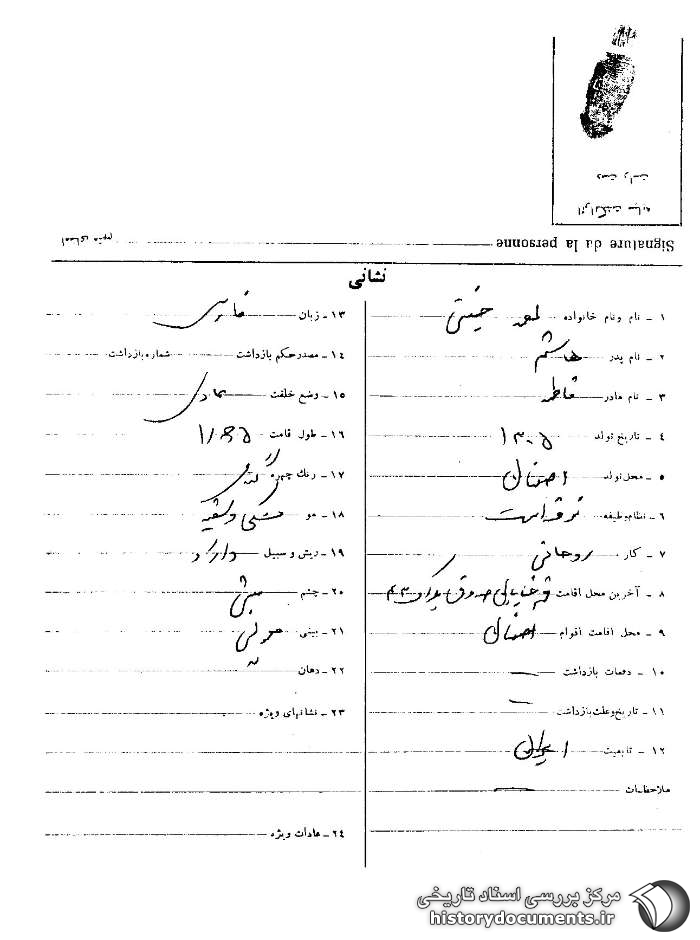 اثر انگشت سبابه
دست راست
Signature da la personne امضای متهم
نشانی
۱ - نام ونام خانواده
۲ - نام پدر هاشم
۳ - نام مادر فاطمه
٤ - تاریخ تولد ۱۳۰۵
۵ - محل تولد اصفهان
۶ - نظام وظیفه
۷ - کار روحانی
۸ - آخرین محل اقامت قم
۹ - محل اقامت اقوام اصفهان
۱۰ - دفعات بازداشت —
۱۱ - تاریخ وعلت بازداشت —
۱۲ - تابعیت ایران
ملاحظات —
۱۳ - زبان فارسی
۱٤ - مصدر حکم بازداشت شماره بازداشت
۱۵ - وضع خلقت عادی
۱۶ - طول قامت
۱۷ - رنك چهره گندمی
۱۸ - مو مشکی و سفید
۱۹ - ریش و سبیل دارد
۲۰ - چشم میشی
۲۱ - بینی معمولی
۲۲ - دهان "
۲۳ - نشانهای ویژه
۲٤ - عادات ویژه
مرکز بررسی اسناد تاریخی
historydocuments.ir